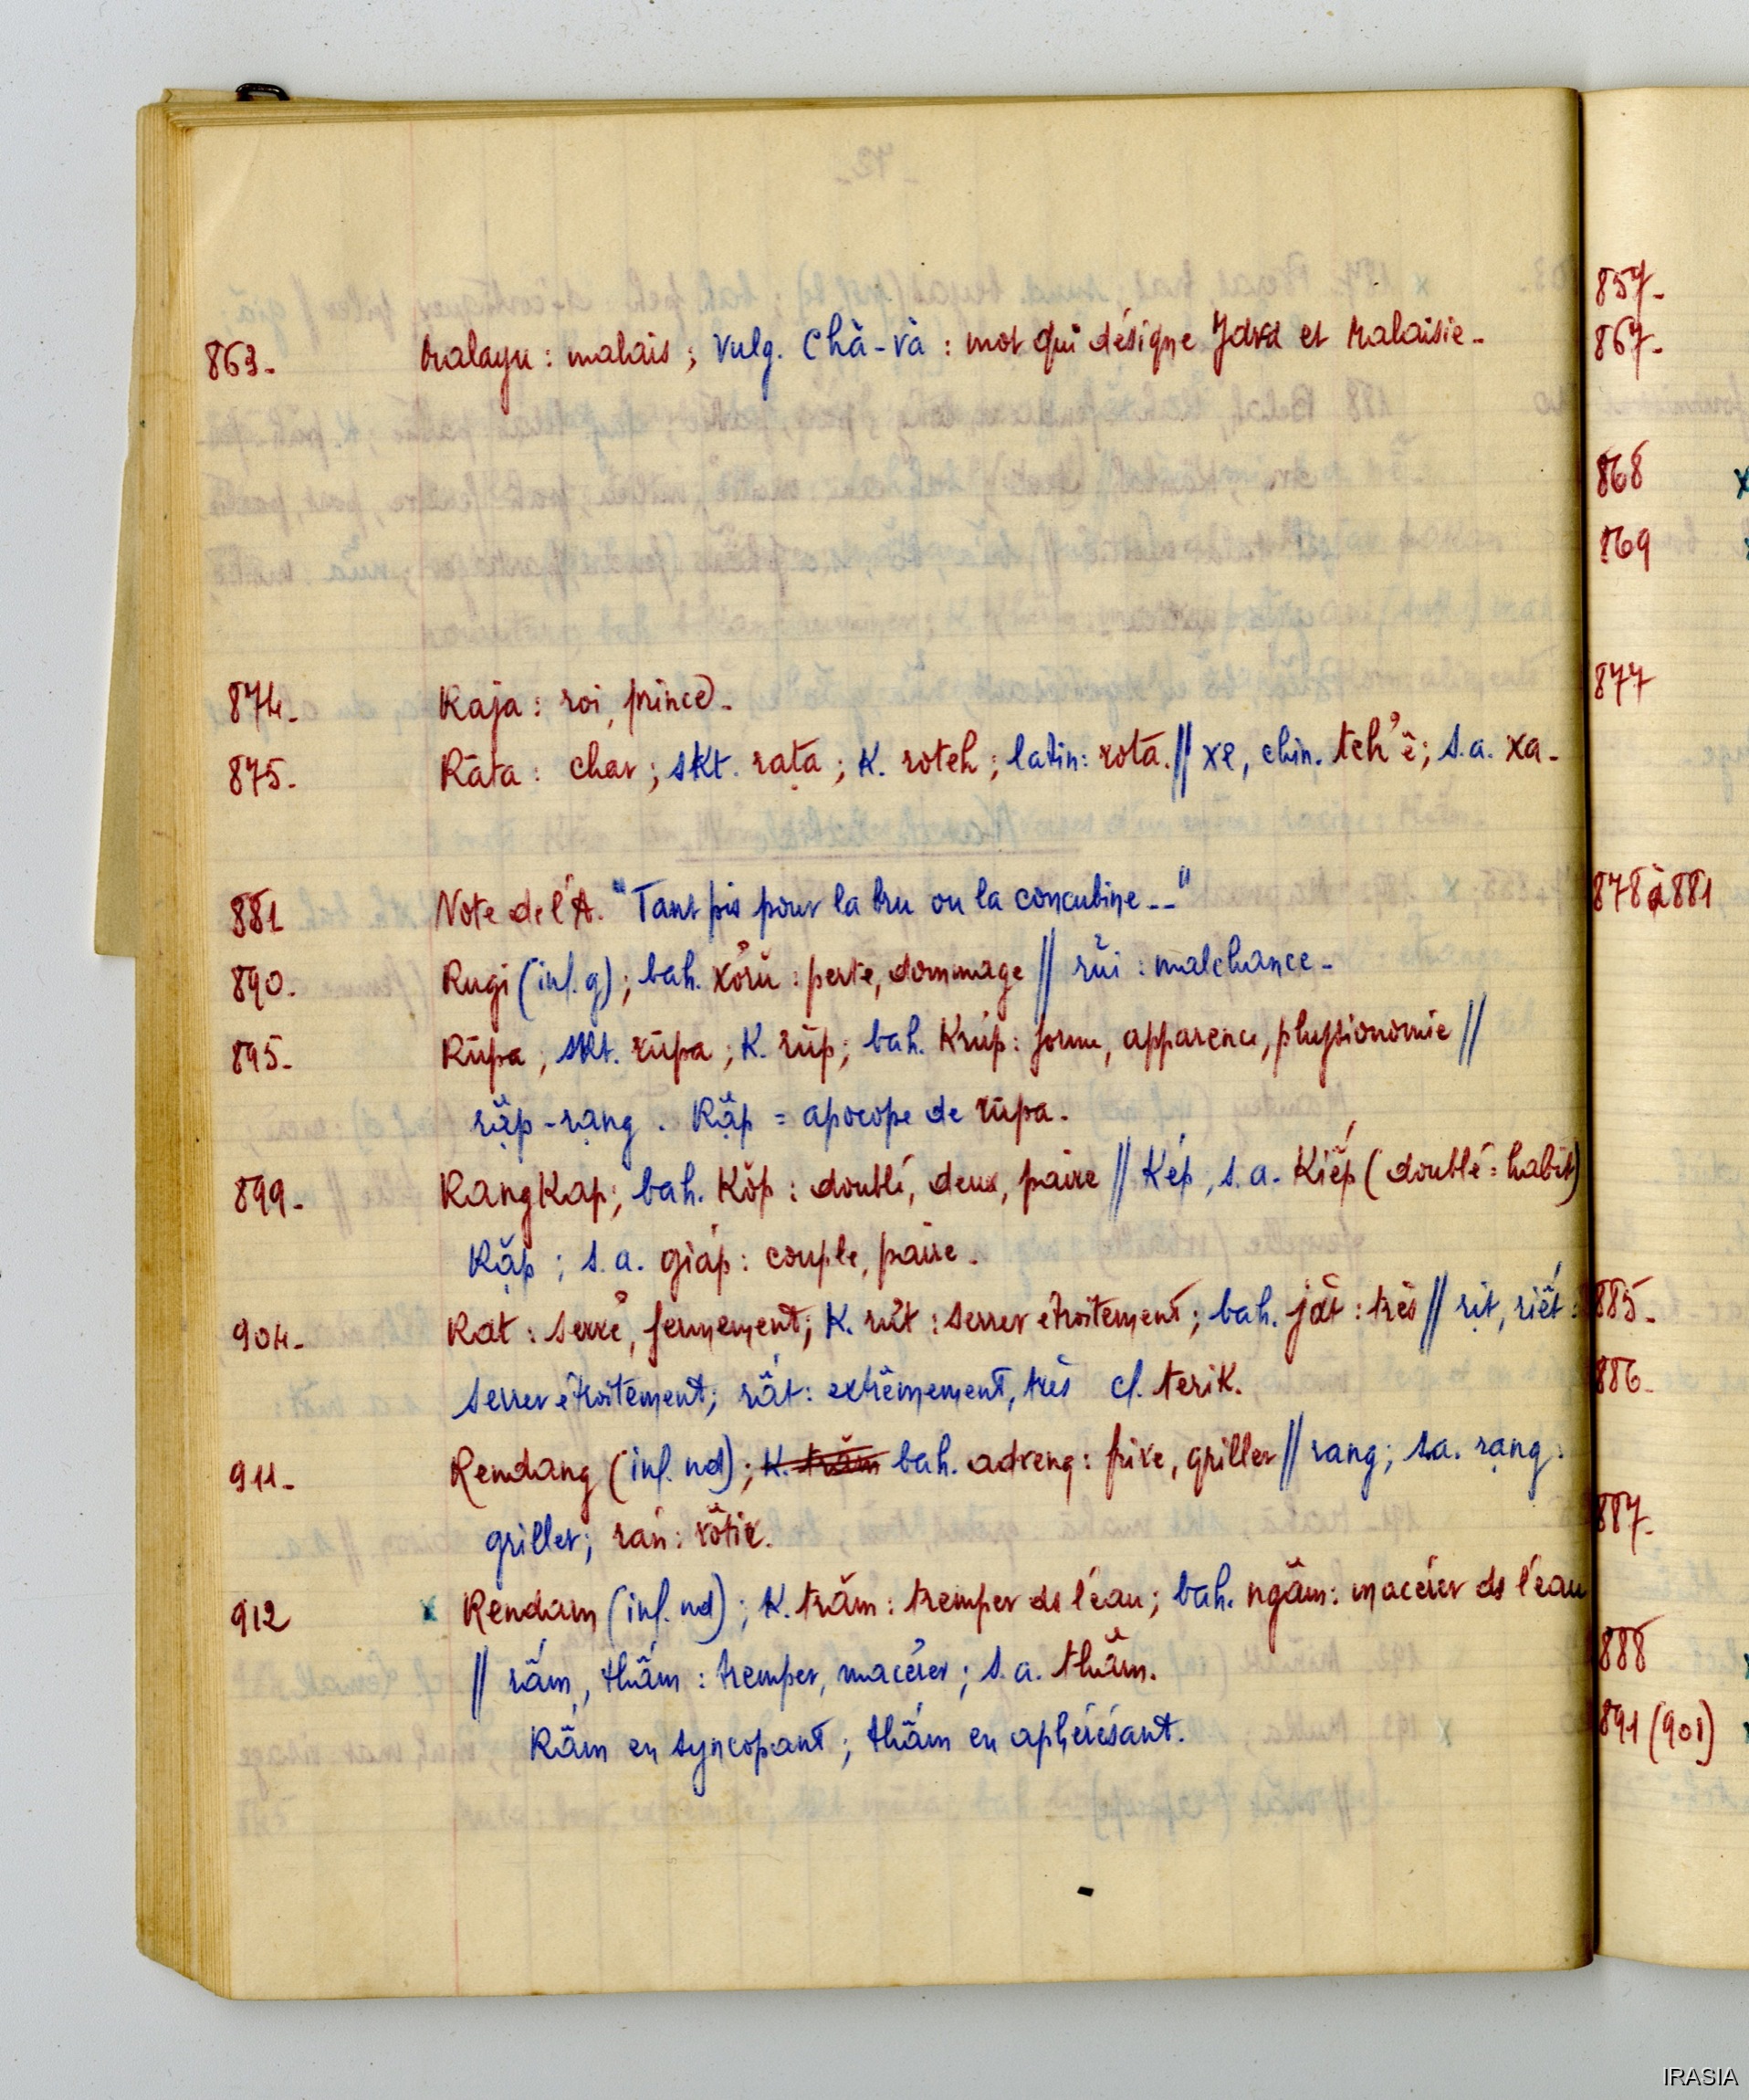 863. Malayu : malais ; vulg. Chà-và : mot qui désigne Java et Malaisie.
874. Raja : roi, prince.
875. Rāta : char ; skt. raṭa ; K. roteh ; latin : rota. // xe, chin. tch'ê ; s.a. xa.
881 Note de l'A. "Tant pis pour la bru ou la concubine..."
890. Rugi (inf. g) ; bah. : perte, dommage // rủi : malchance.
895. Rūpa ; skt. rūpa ; K. rūp ; bah. Krup : forme, apparence, physionomie //
rặp-rạng. Rặp = apocope de rūpa.
899. RangKap ; bah. Kŏp : doublé, deux, paire // Kép, s.a. Kiếp (doublé : habit)
Kặp ; s.a. giáp : couple, paire.
904. Rat : serré, fermement ; K. rưt : serrer étroitement ; bah. jăt : très // rịt, riết :
serrer étroitement ; rất : extrêmement, très cf. teriK.
911. Rendang (inf. nd) ; K. trăm bah. adreng : frire, griller // rang ; s.a. rạng :
griller ; rán : rôtir.
912 x Rendam (inf. nd) ; K. trăm : tremper ds l'eau ; bah. ngăm : macérer ds l'eau
// rấm, thấm : tremper, macérer ; s.a. thấm.
Rấm en syncopant ; thấm en aphérésant.
857.
867.
868 x
869
877
878 à 881
885.
886.
887.
888
891 (901)
IRASIA